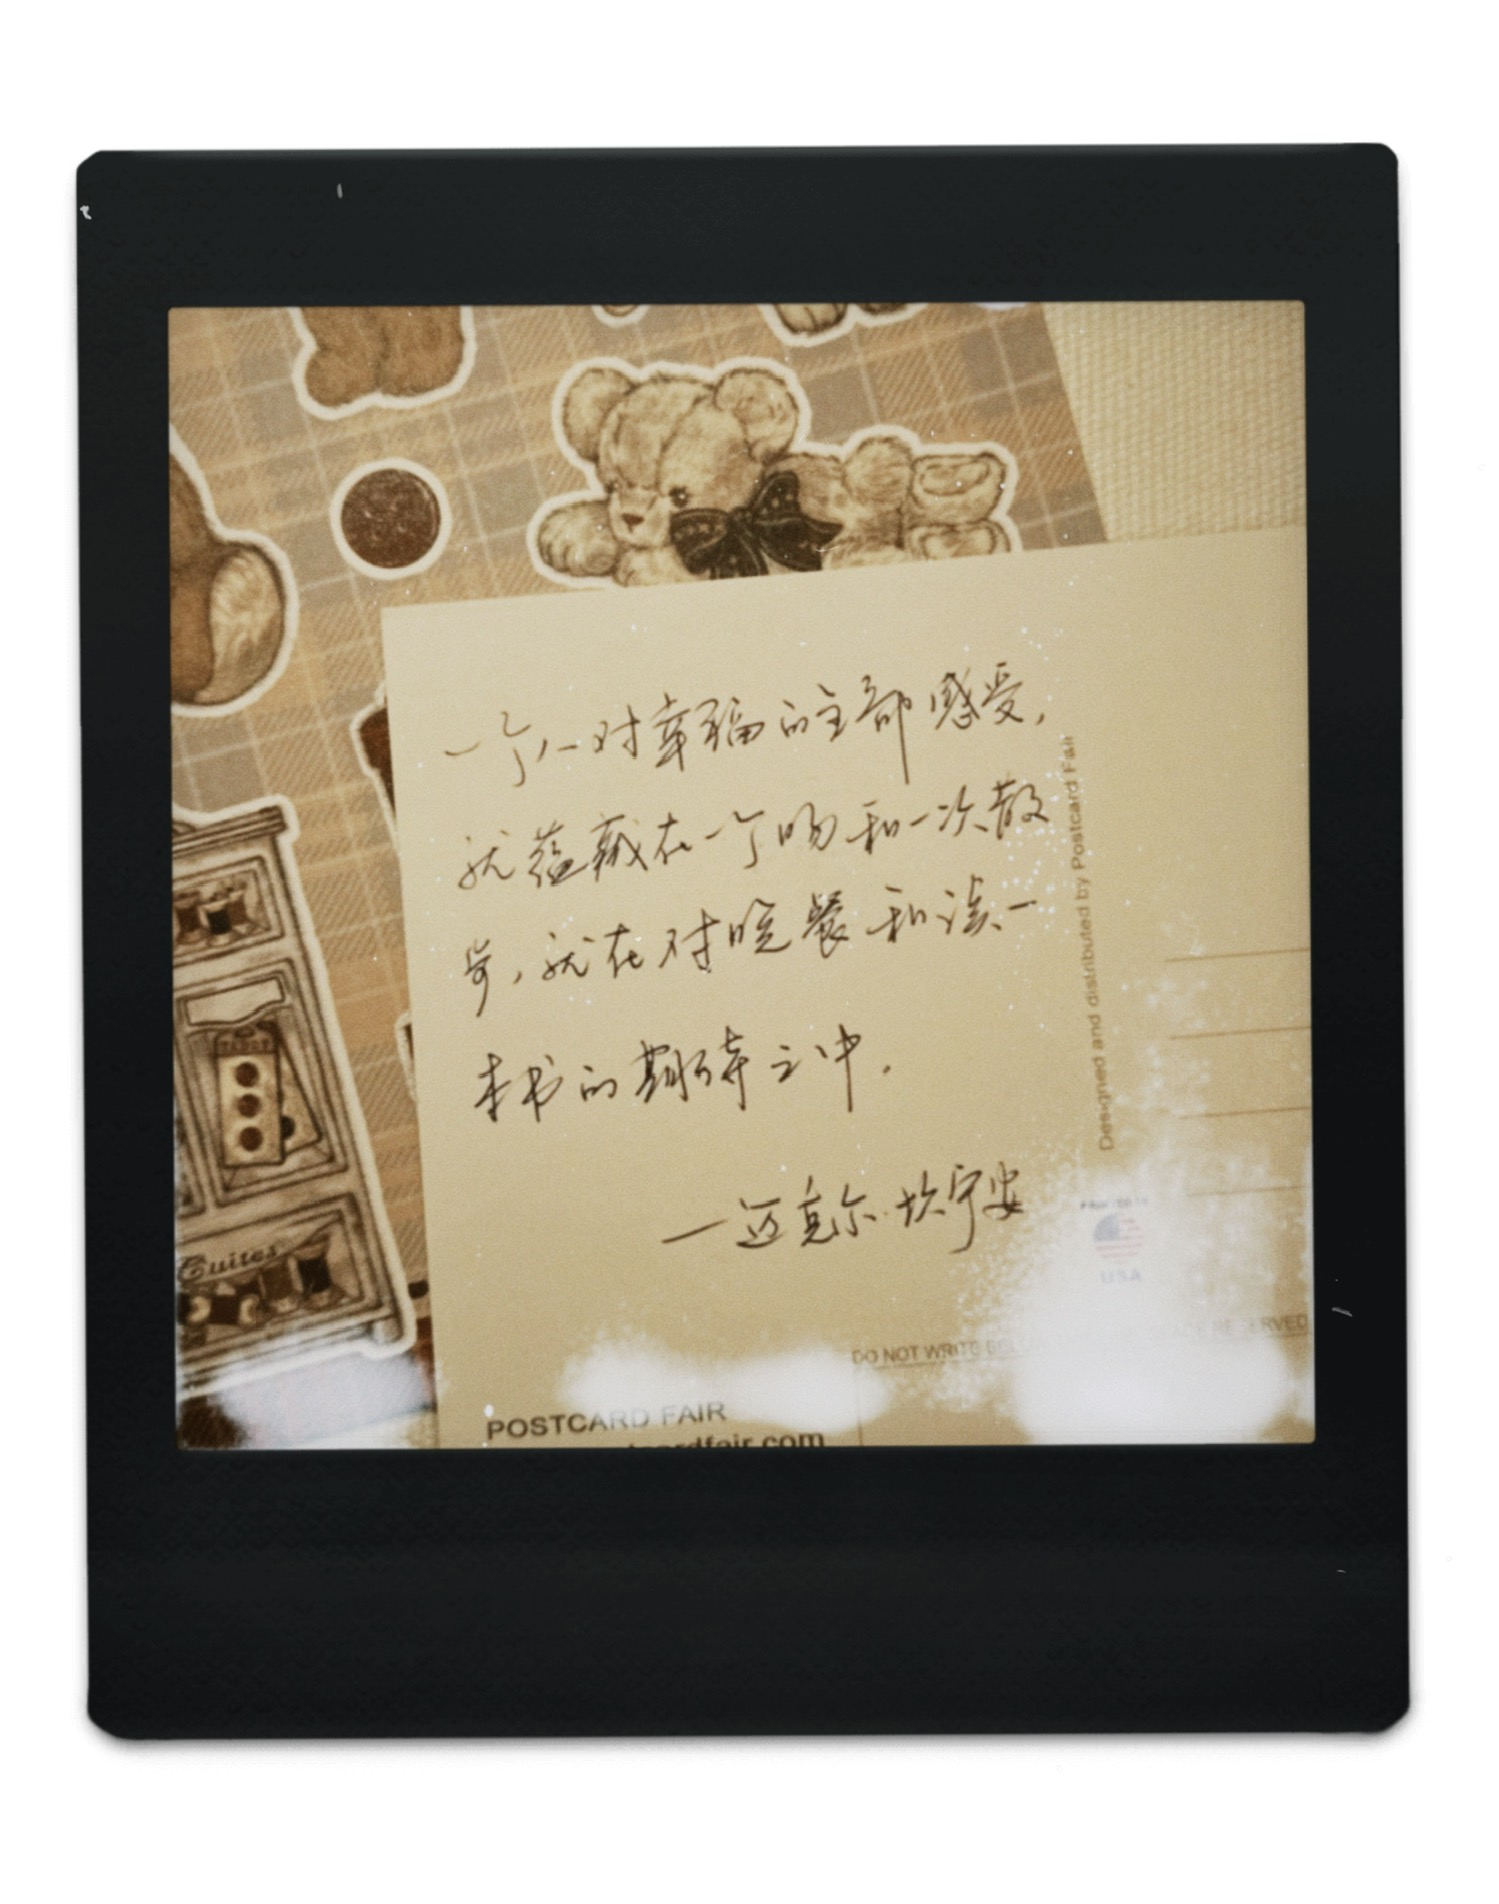 一个人对幸福的全部感受,
就蕴藏在一个吻和一次散
步,就在对晚餐和读一
本书的期待之中.
—迈克尔·坎宁安
Designed and distributed by Postcard Fair
USA
DO NOT WRITE
RESERVED
POSTCARD FAIR
cardfair.com
Cuites